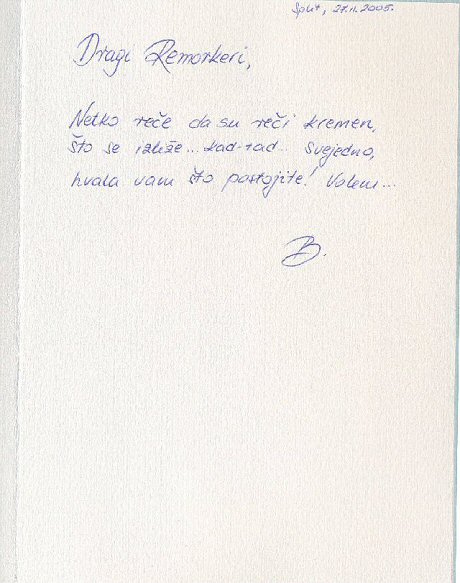 Split, 27.11.2005.
Dragi Remorkeri,
Netko reče da su reči kremen,
što se izliže... kad-tad... Svejedno,
hvala vam što postojite! Volem...
B.